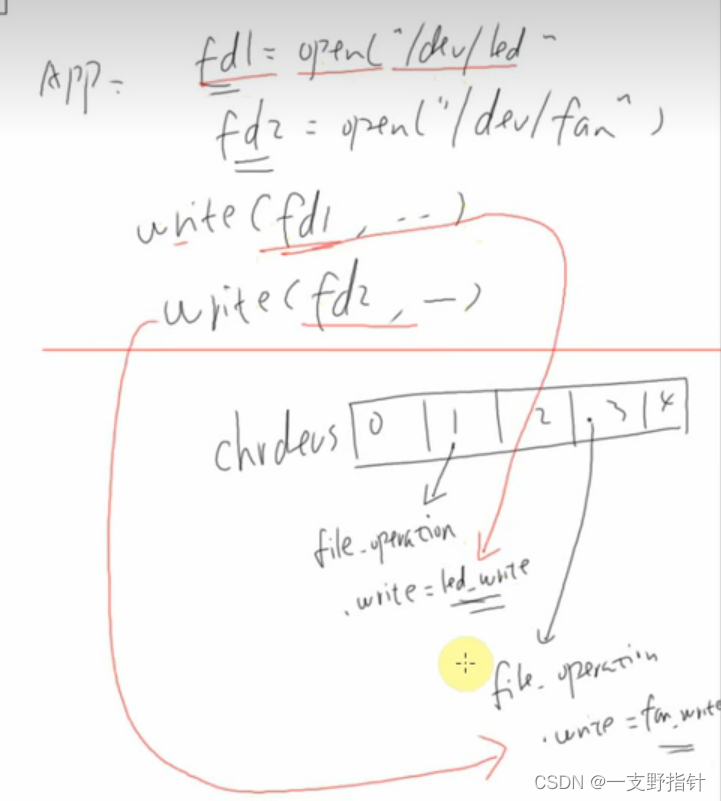 App: fd1 = open("/dev/led"
fd2 = open("/dev/fan")
write(fd1, --)
write(fd2, —)
chrdevs 0 1 2 3 4
file_operation
.write = led_write
file_operation
.write = fan_write
CSDN @一支野指针